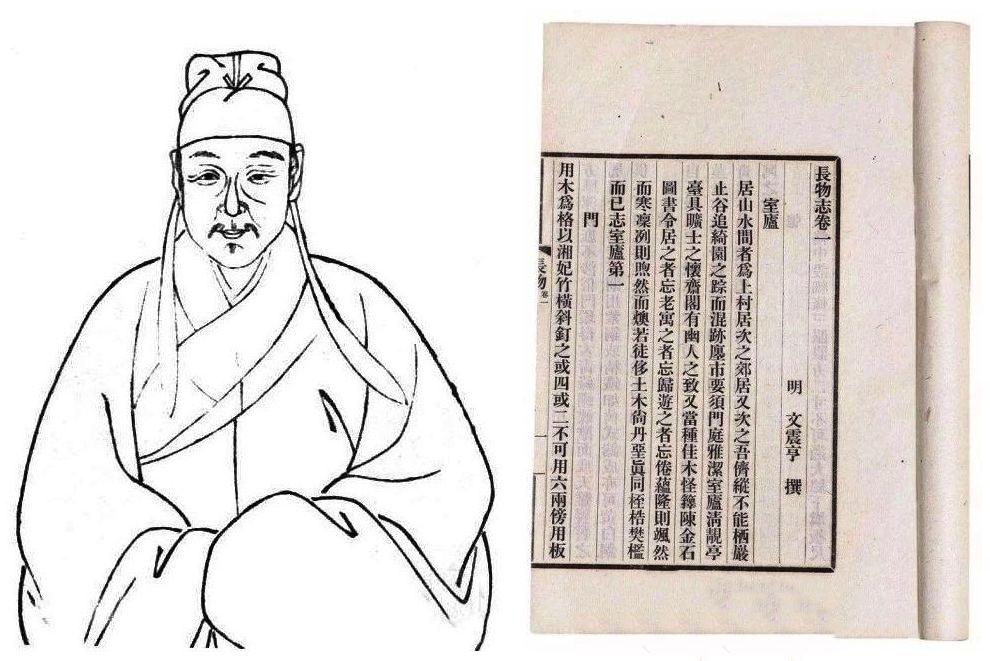 長物志卷一
明 文震亨 撰
室廬
居山水間者爲上村居次之郊居又次之吾儕縱不能栖巖
止谷追綺園之踪而混跡廛市要須門庭雅潔室廬清靚亭
臺具曠士之懷齋閣有幽人之致又當種佳木怪籜陳金石
圖書令居之者忘老寓之者忘歸遊之者忘倦蘊隆則颯然
而寒凜冽則煦然而燠若徒侈土木尙丹堊眞同桎梏樊檻
而已志室廬第一
門
用木爲格以湘妃竹橫斜釘之或四或二不可用六兩傍用板
長物